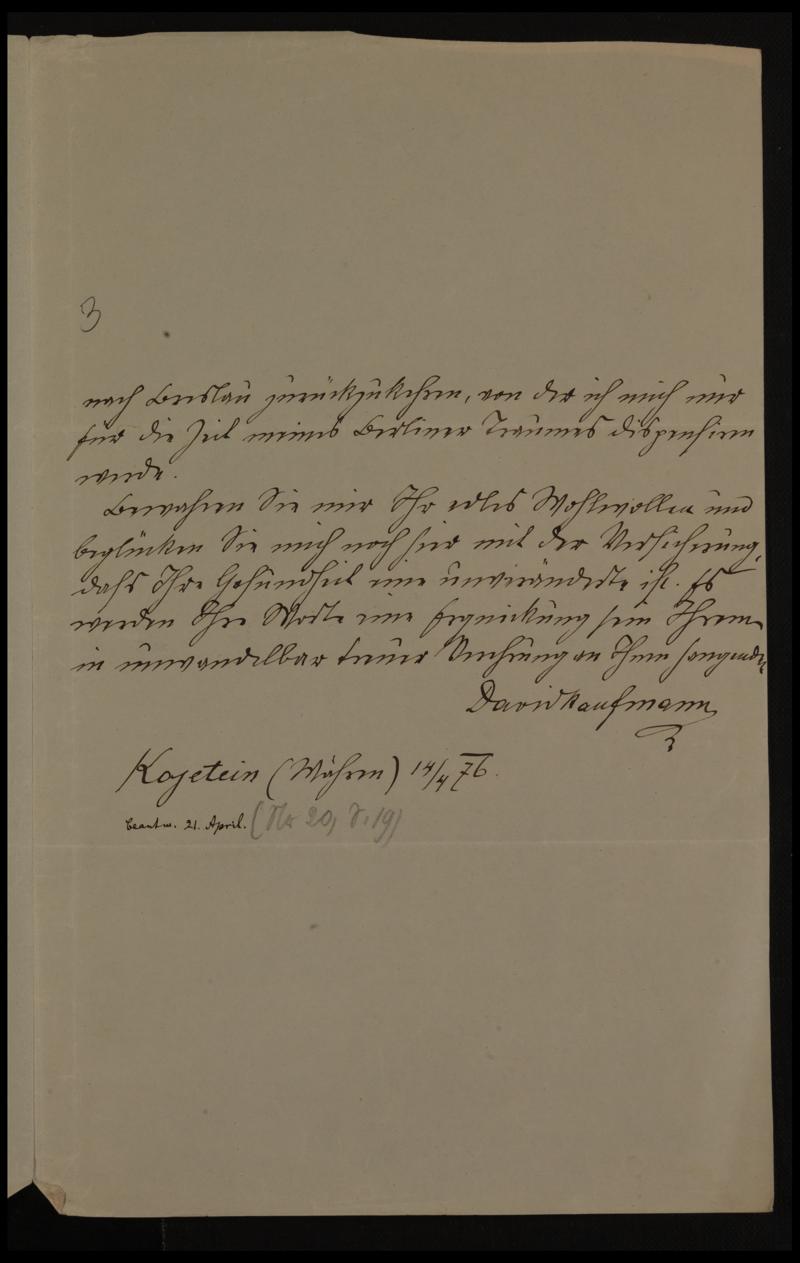 3
nach Breslau zurückzukehren, von der ich mich nur
für die Zeit meines Berliner Traumes dispensiren
werde.
Bewahren Sie mir Ihr edles Wohlwollen und
beglücken Sie mich noch hier mit der Versicherung,
dass Ihre Gesundheit eine unveränderte ist. Es
werden Ihre Worte eine Erquickung sein Ihrem
in unwandelbar treuer Verehrung an Ihnen hangenden
David Kaufmann
Kojetein (Mähren) 14/4 76.
beantw. 21. April. (Nr 20, S. 19)